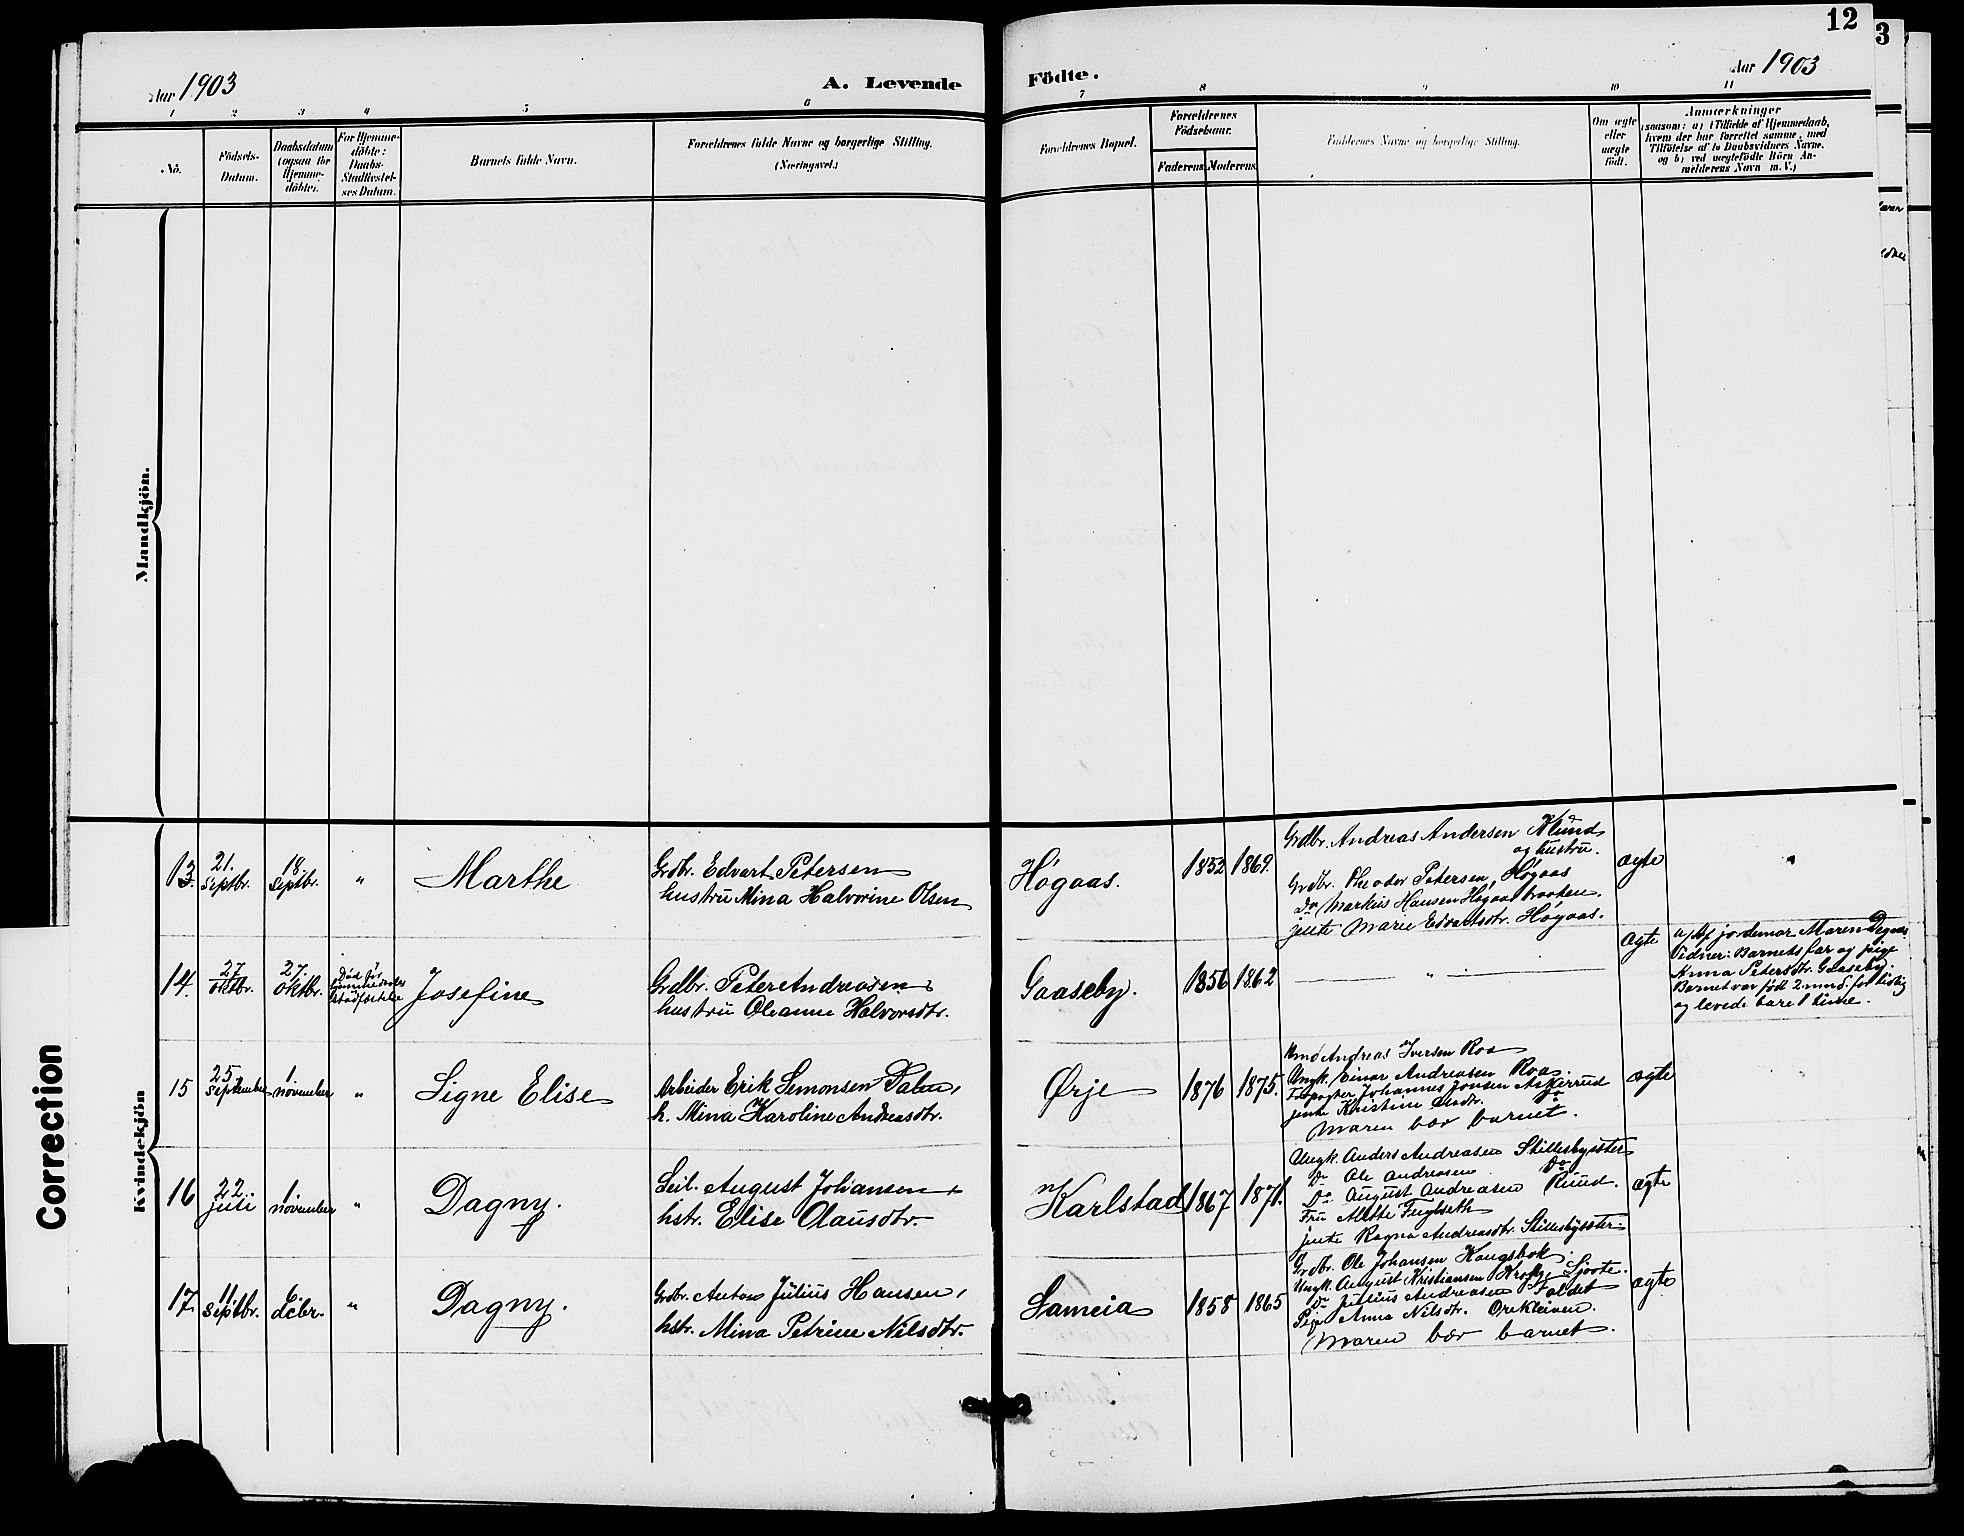 12
3
Aar 1903
A. Levende
Födte.
Aar 1903
1 2 3 4 5 6 7 8 9 10 11
No.
Födsels-
Datum.
Daabsdatum
(ogsaa for
Hjemme-
döbte).
For Hjemme-
döbte:
Daabs-
Stadfæstel-
ses Datum.
Barnets fulde Navn.
Forældrenes fulde Navne og borgerlige Stilling.
(Næringsvei.)
Forældrenes Bopæl.
Forældrenes
Födselsaar.
Faderens
Moderens
Faddernes Navne og borgerlige Stilling.
Om ægte
eller
uægte
födt.
Anmærkninger
(saasom: a) i Tilfælde af Hjemmedaab,
hvem der har forrettet samme, med
Tilföielse af to Daabsvidners Navne,
og b) ved uægtefödte Börn An-
melderens Navn m. V.)
Mandkjön.
Kvindekjön
Correction
13.
21.
Septbr.
18.
Septbr.
"
Marthe
Grdbr. Edvart Petersen
hustru Mina Halvorine Olsen
Høgaas.
1852
1869.
Grdbr. Andreas Andersen Klund
og hustru.
Grdbr. Theodor Petersen, Høgaas
Do Markus Hansen Høgaasbraaten.
jente Marie Edvartsdtr. Høgaas.
ægte
"
14.
27
Oktbr.
27.
Oktbr.
Død før
Stadfæstelse
Josefine
Grdbr. Peter Andreasen
hustru Oleanne Halvorsdtr.
Gaaseby.
1856
1862
"
ægte
a) Af jordemor Maren Degnes
Vidner: Barnets far og pige
Anna Petersdtr. Gaaseby.
Barnet var født 2 mnd. for tidlig
og levede bare 1 time.
15
25
September
1
november
"
Signe Elise
Arbeider Erik Semonsen Dalen,
h. Mina Karoline Andreasdtr.
Ørje
1876
1875.
Andreas Iversen Roa
Ungk. Einar Andreasen Roa.
Johannes Jonsen Askerud
jente Kristine
Maren bar barnet.
ægte
16
22
juli
1
november
"
Dagny.
Seil. August Johansen
hstr. Elise Olausdtr.
Karlstad
1867
1871.
Ungk. Anders Andreasen Stillesbyøster
Do Ole Andreasen Do
Do August Andreasen Ruud.
Fru Mette Fuglseth
jente Ragna Andreasdtr. Stillesbyøster.
ægte
17.
11.
Septbr.
6.
dcbr.
"
Dagny.
Grdbr. Anton Julius Hansen,
hstr. Mina Petrine Nilsdtr.
Lameia
1858
1865
Grdbr. Ole Johansen Kaugsbok.
Ungk. August Kristiansen
Do Julius Andreasen Faldet
Pige Anna Nilsdtr. Orekleiven.
Maren bar barnet.
ægte